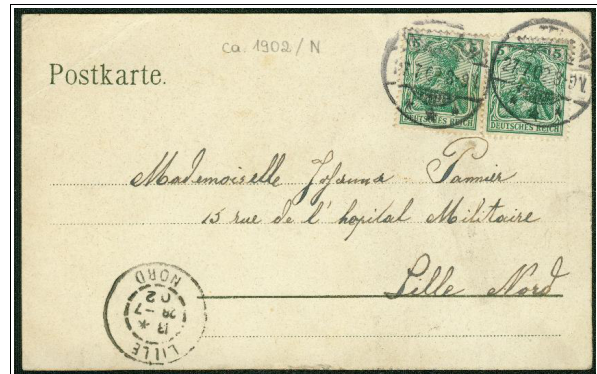 ca. 1902/N
Postkarte.
5 5
DEUTSCHES REICH DEUTSCHES REICH
Mademoiselle Johanna Pannier
15 rue de l'hopital Militaire
Lille Nord
LILLE
13 *
28 -7
02
NORD